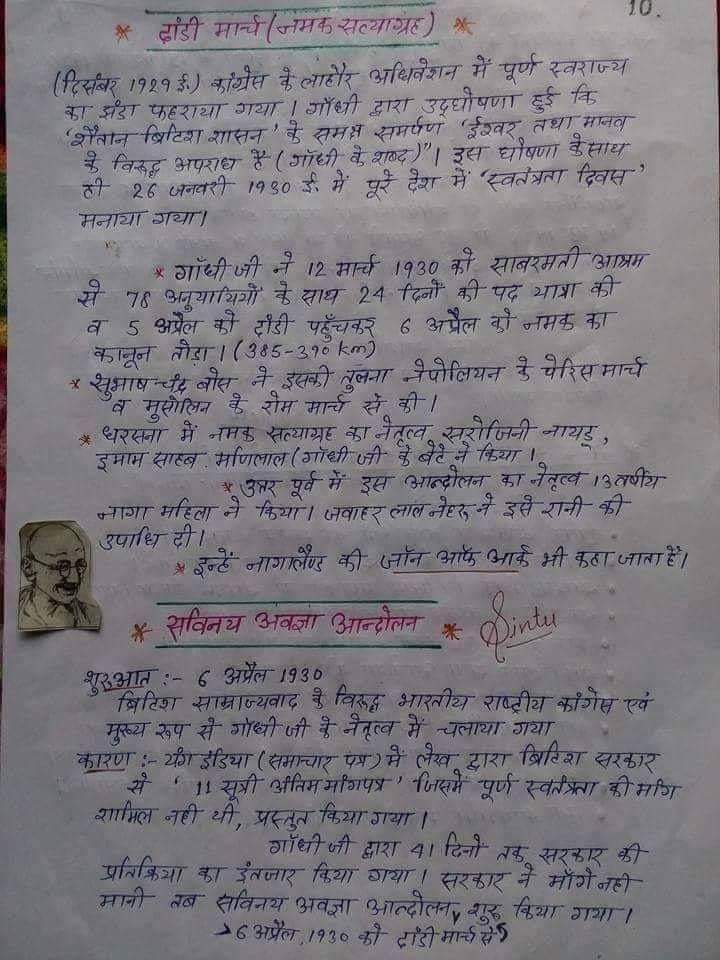 10.
* दांडी मार्च (नमक सत्याग्रह) *
(दिसंबर 1929 ई.) कांग्रेस के लाहौर अधिवेशन में पूर्ण स्वराज्य
का झंडा फहराया गया। गाँधी द्वारा उद्घोषणा हुई कि
'शैतान ब्रिटिश शासन' के समक्ष समर्पण 'ईश्वर तथा मानव
के विरुद्ध अपराध है (गाँधी के शब्द)"। इस घोषणा के साथ
ही 26 जनवरी 1930 ई. में पूरे देश में 'स्वतंत्रता दिवस'
मनाया गया।
* गाँधी जी ने 12 मार्च 1930 को साबरमती आश्रम
से 78 अनुयायियों के साथ 24 दिनों की पद यात्रा की
व 5 अप्रैल को दांडी पहुँचकर 6 अप्रैल को नमक का
कानून तोड़ा। (385-390 km)
* सुभाष चंद्र बोस ने इसकी तुलना नेपोलियन के पेरिस मार्च
व मुसोलिन के रोम मार्च से की।
* धरसना में नमक सत्याग्रह का नेतृत्व सरोजिनी नायडू,
इमाम साहब मणिलाल (गाँधी जी के बेटे ने किया।
* उत्तर पूर्व में इस आन्दोलन का नेतृत्व 13 वर्षीय
नागा महिला ने किया। जवाहर लाल नेहरू ने इसे रानी की
उपाधि दी।
* इन्हें नागालैण्ड की जॉन ऑफ आर्क भी कहा जाता है।
* सविनय अवज्ञा आन्दोलन *
Sintu
शुरुआत :- 6 अप्रैल 1930
ब्रिटिश साम्राज्यवाद के विरुद्ध भारतीय राष्ट्रीय कांग्रेस एवं
मुख्य रूप से गाँधी जी के नेतृत्व में चलाया गया
कारण :- यंग इंडिया (समाचार पत्र) में लेख द्वारा ब्रिटिश सरकार
से '11 सूत्री अंतिम मांगपत्र' जिसमें पूर्ण स्वतंत्रता की मांग
शामिल नही थी, प्रस्तुत किया गया।
गाँधी जी द्वारा 41 दिनो तक सरकार की
प्रतिक्रिया का इंतजार किया गया। सरकार ने माँगे नही
मानी तब सविनय अवज्ञा आन्दोलन शुरू किया गया।
6 अप्रैल, 1930 को दांडी मार्च से